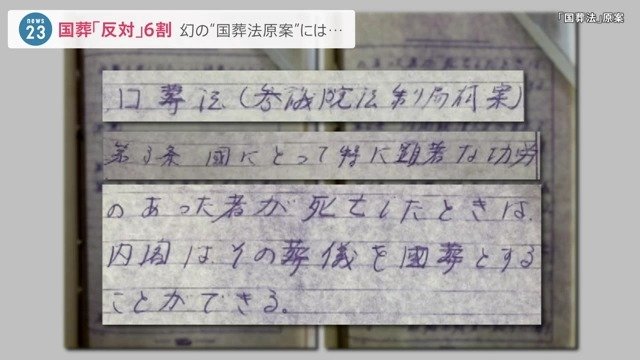 news
23
国葬「反対」6割 幻の“国葬法原案”には…
「国葬法」原案
口葬法(参議院法制局柯案)
第3条 國にとって特に顕著な功労
のあった者が死亡したときは、
内閣はその葬儀を國葬とする
ことができる。